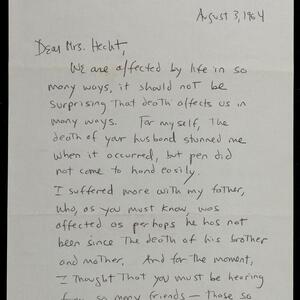 August 3, 1964
Dear Mrs. Hecht,
We are affected by life in so
many ways, it should not be
surprising that death affects us in
many ways. For myself, the
death of your husband stunned me
when it occurred, but pen did
not come to hand easily.
I suffered more with my father,
who, as you must know, was
affected as perhaps he has not
been since the death of his brother
and mother. And for the moment,
I thought that you must be hearing
from so many friends — those so